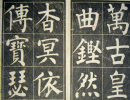 萬古皇
曲鏗然
杳冥依
傳寶瑟